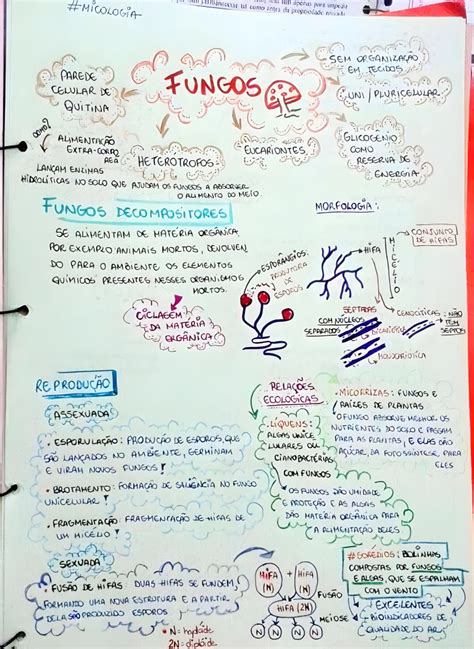 #MICOLOGIA
FUNGOS
PAREDE
CELULAR DE
QUITINA
SEM ORGANIZAÇÃO
EM TECIDOS
UNI/PLURICELULAR
GLICOGÊNIO
COMO
RESERVA DE
ENERGIA
EUCARIONTES
HETERÓTROFOS
COMO?
ALIMENTAÇÃO
EXTRA-CORPO
LANÇAM ENZIMAS
HIDROLÍTICAS NO SOLO QUE AJUDAM OS FUNGOS A ABSORVER
O ALIMENTO DO MEIO
FUNGOS DECOMPOSITORES
SE ALIMENTAM DE MATÉRIA ORGÂNICA,
POR EXEMPLO ANIMAIS MORTOS, DEVOLVEN
DO PARA O AMBIENTE OS ELEMENTOS
QUÍMICOS PRESENTES NESSES ORGANISMOS
MORTOS.
CICLAGEM
DA MATÉRIA
ORGÂNICA
MORFOLOGIA:
ESPORÂNGIOS:
PRODUTORA
DE
ESPOROS
HIFA
MICÉLIO
CONJUNTO
DE HIFAS
SEPTADAS
COM NÚCLEOS
SEPARADOS
CENOCÍTICAS: NÃO
TEM
SEPTOS
DICARIÓTICA
MONOCARIÓTICA
REPRODUÇÃO
ASSEXUADA
• ESPORULAÇÃO: PRODUÇÃO DE ESPOROS, QUE
SÃO LANÇADOS NO AMBIENTE, GERMINAM
E VIRAM NOVOS FUNGOS!
• BROTAMENTO: FORMAÇÃO DE SALIÊNCIA NO FUNGO
UNICELULAR!
• FRAGMENTAÇÃO: FRAGMENTAÇÃO DE HIFAS DE
UM MICÉLIO!
SEXUADA
• FUSÃO DE HIFAS: DUAS HIFAS SE FUNDEM,
FORMANDO UMA NOVA ESTRUTURA E A PARTIR
DELA SÃO PRODUZIDO ESPOROS
* N = haploide
2N = diploide
HIFA
(N)
+
HIFA
(N)
FUSÃO
HIFA (2N)
MEIOSE
N N N N
RELAÇÕES
ECOLÓGICAS
LÍQUENS:
ALGAS UNICE
LULARES OU
CIANOBACTÉRIAS
COM FUNGOS
OS FUNGOS DÃO UMIDADE
E PROTEÇÃO E AS ALGAS
DÃO MATÉRIA ORGÂNICA PARA
A ALIMENTAÇÃO DELES
• MICORRIZAS: FUNGOS E
RAÍZES DE PLANTAS
O FUNGO ABSORVE MELHOR OS
NUTRIENTES DO SOLO E PASSAM
PARA AS PLANTAS, E ELAS DÃO
AÇÚCAR, DA FOTOSSÍNTESE, PARA
ELES
#SORÉDIOS: BOLINHAS
COMPOSTAS POR FUNGOS
E ALGAS, QUE SE ESPALHAM
COM O VENTO
EXCELENTES
BIOINDICADORES DE
QUALIDADE DO AR